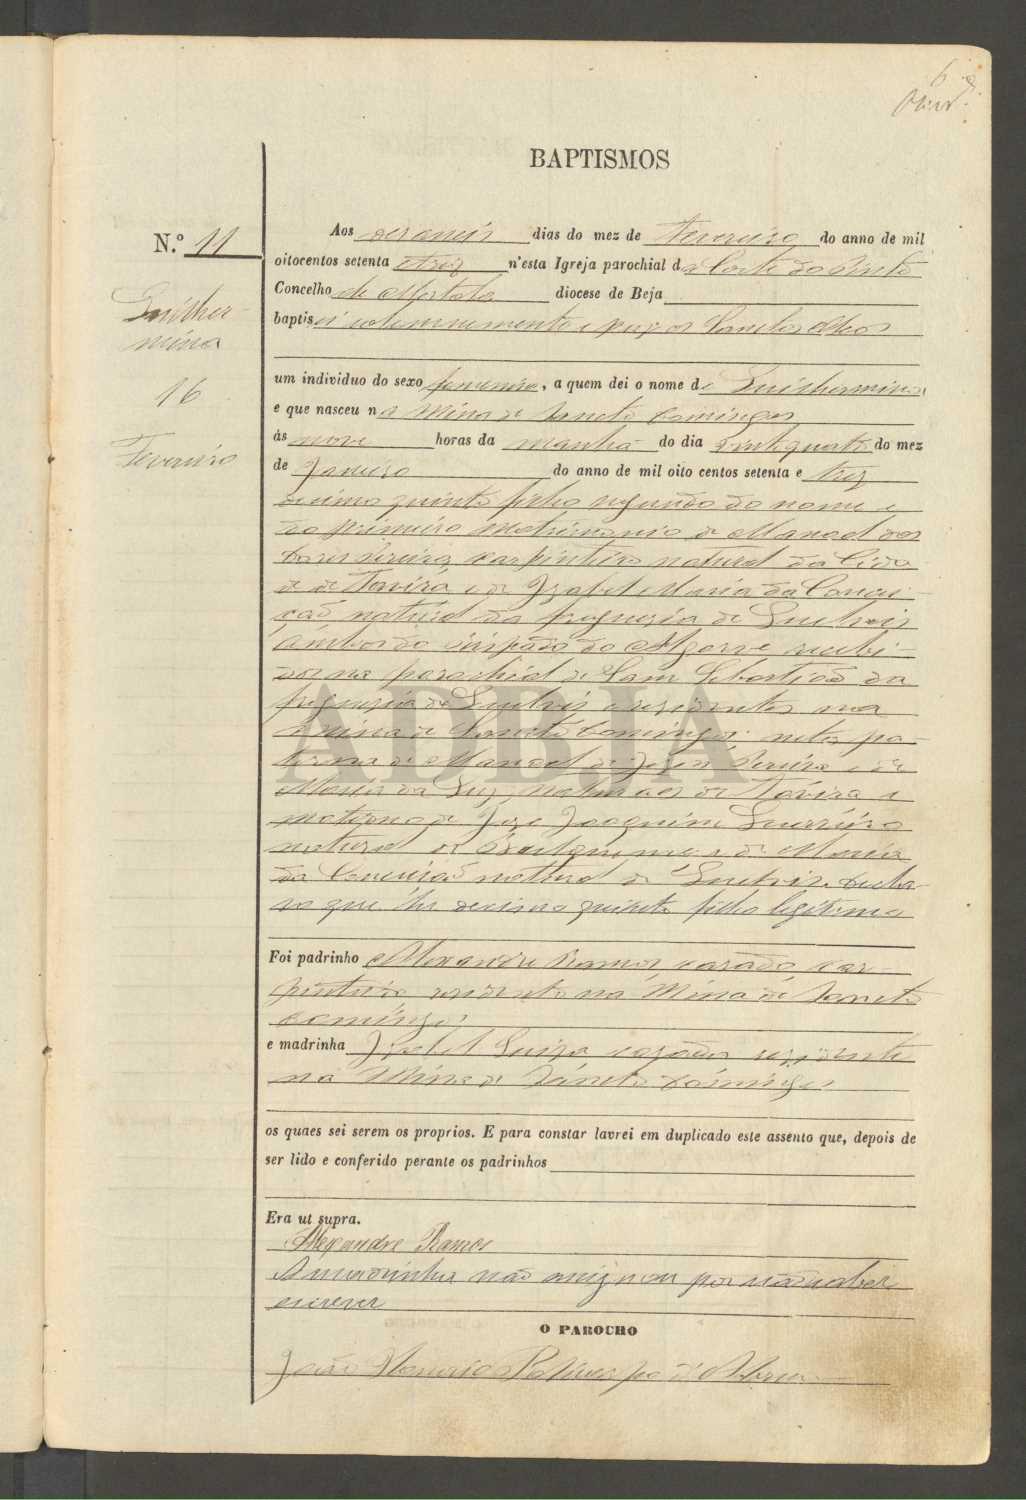 6
BAPTISMOS
N.º 11
Guilher-
mina
16
Fevereiro
Aos dezaseis dias do mez de Fevereiro do anno de mil
oitocentos setenta e trez n'esta Igreja parochial da Corte do Pinto
Concelho de Mertola diocese de Beja
baptisei solemnemente e puz os Sanctos oleos
um individuo do sexo femenino, a quem dei o nome de Guilhermina,
e que nasceu na Mina de Sancto Domingos
ás nove horas da manhã do dia vinte quatro do mez
de Janeiro do anno de mil oito centos setenta e trez
decimo quinto filho segundo do nome e
do primeiro matrimonio de Manoel dos
Pereira carpinteiro natural da Cida-
de de Tavira e de Izabel Maria da Concei-
ção natural da freguesia de
ambos do bispado do Algarve recebi-
dos na parochial de Sam Sebastião da
freguesia de e rezidentes na
Mina de Sancto Domingos: neta pa-
terna de Manoel de Pereira e de
Maria da Luz, naturaes de Tavira e
materna de Joze Joaquim Guerreiro
natural de e de Maria
da Conceição natural de Decla-
ro que he decimo quinto filho legitimo
Foi padrinho Alexandre Ramos cazado car-
pinteiro rezidente na Mina de Sancto
Domingos
e madrinha Izabel Luiza cazada rezidente
na Mina de Sancto Domingos
os quaes sei serem os proprios. E para constar lavrei em duplicado este assento que, depois de
ser lido e conferido perante os padrinhos
Era ut supra.
Alexandre Ramos
A madrinha não assignou por não saber
escrever
O PAROCHO
João de Abreu
ADBJA